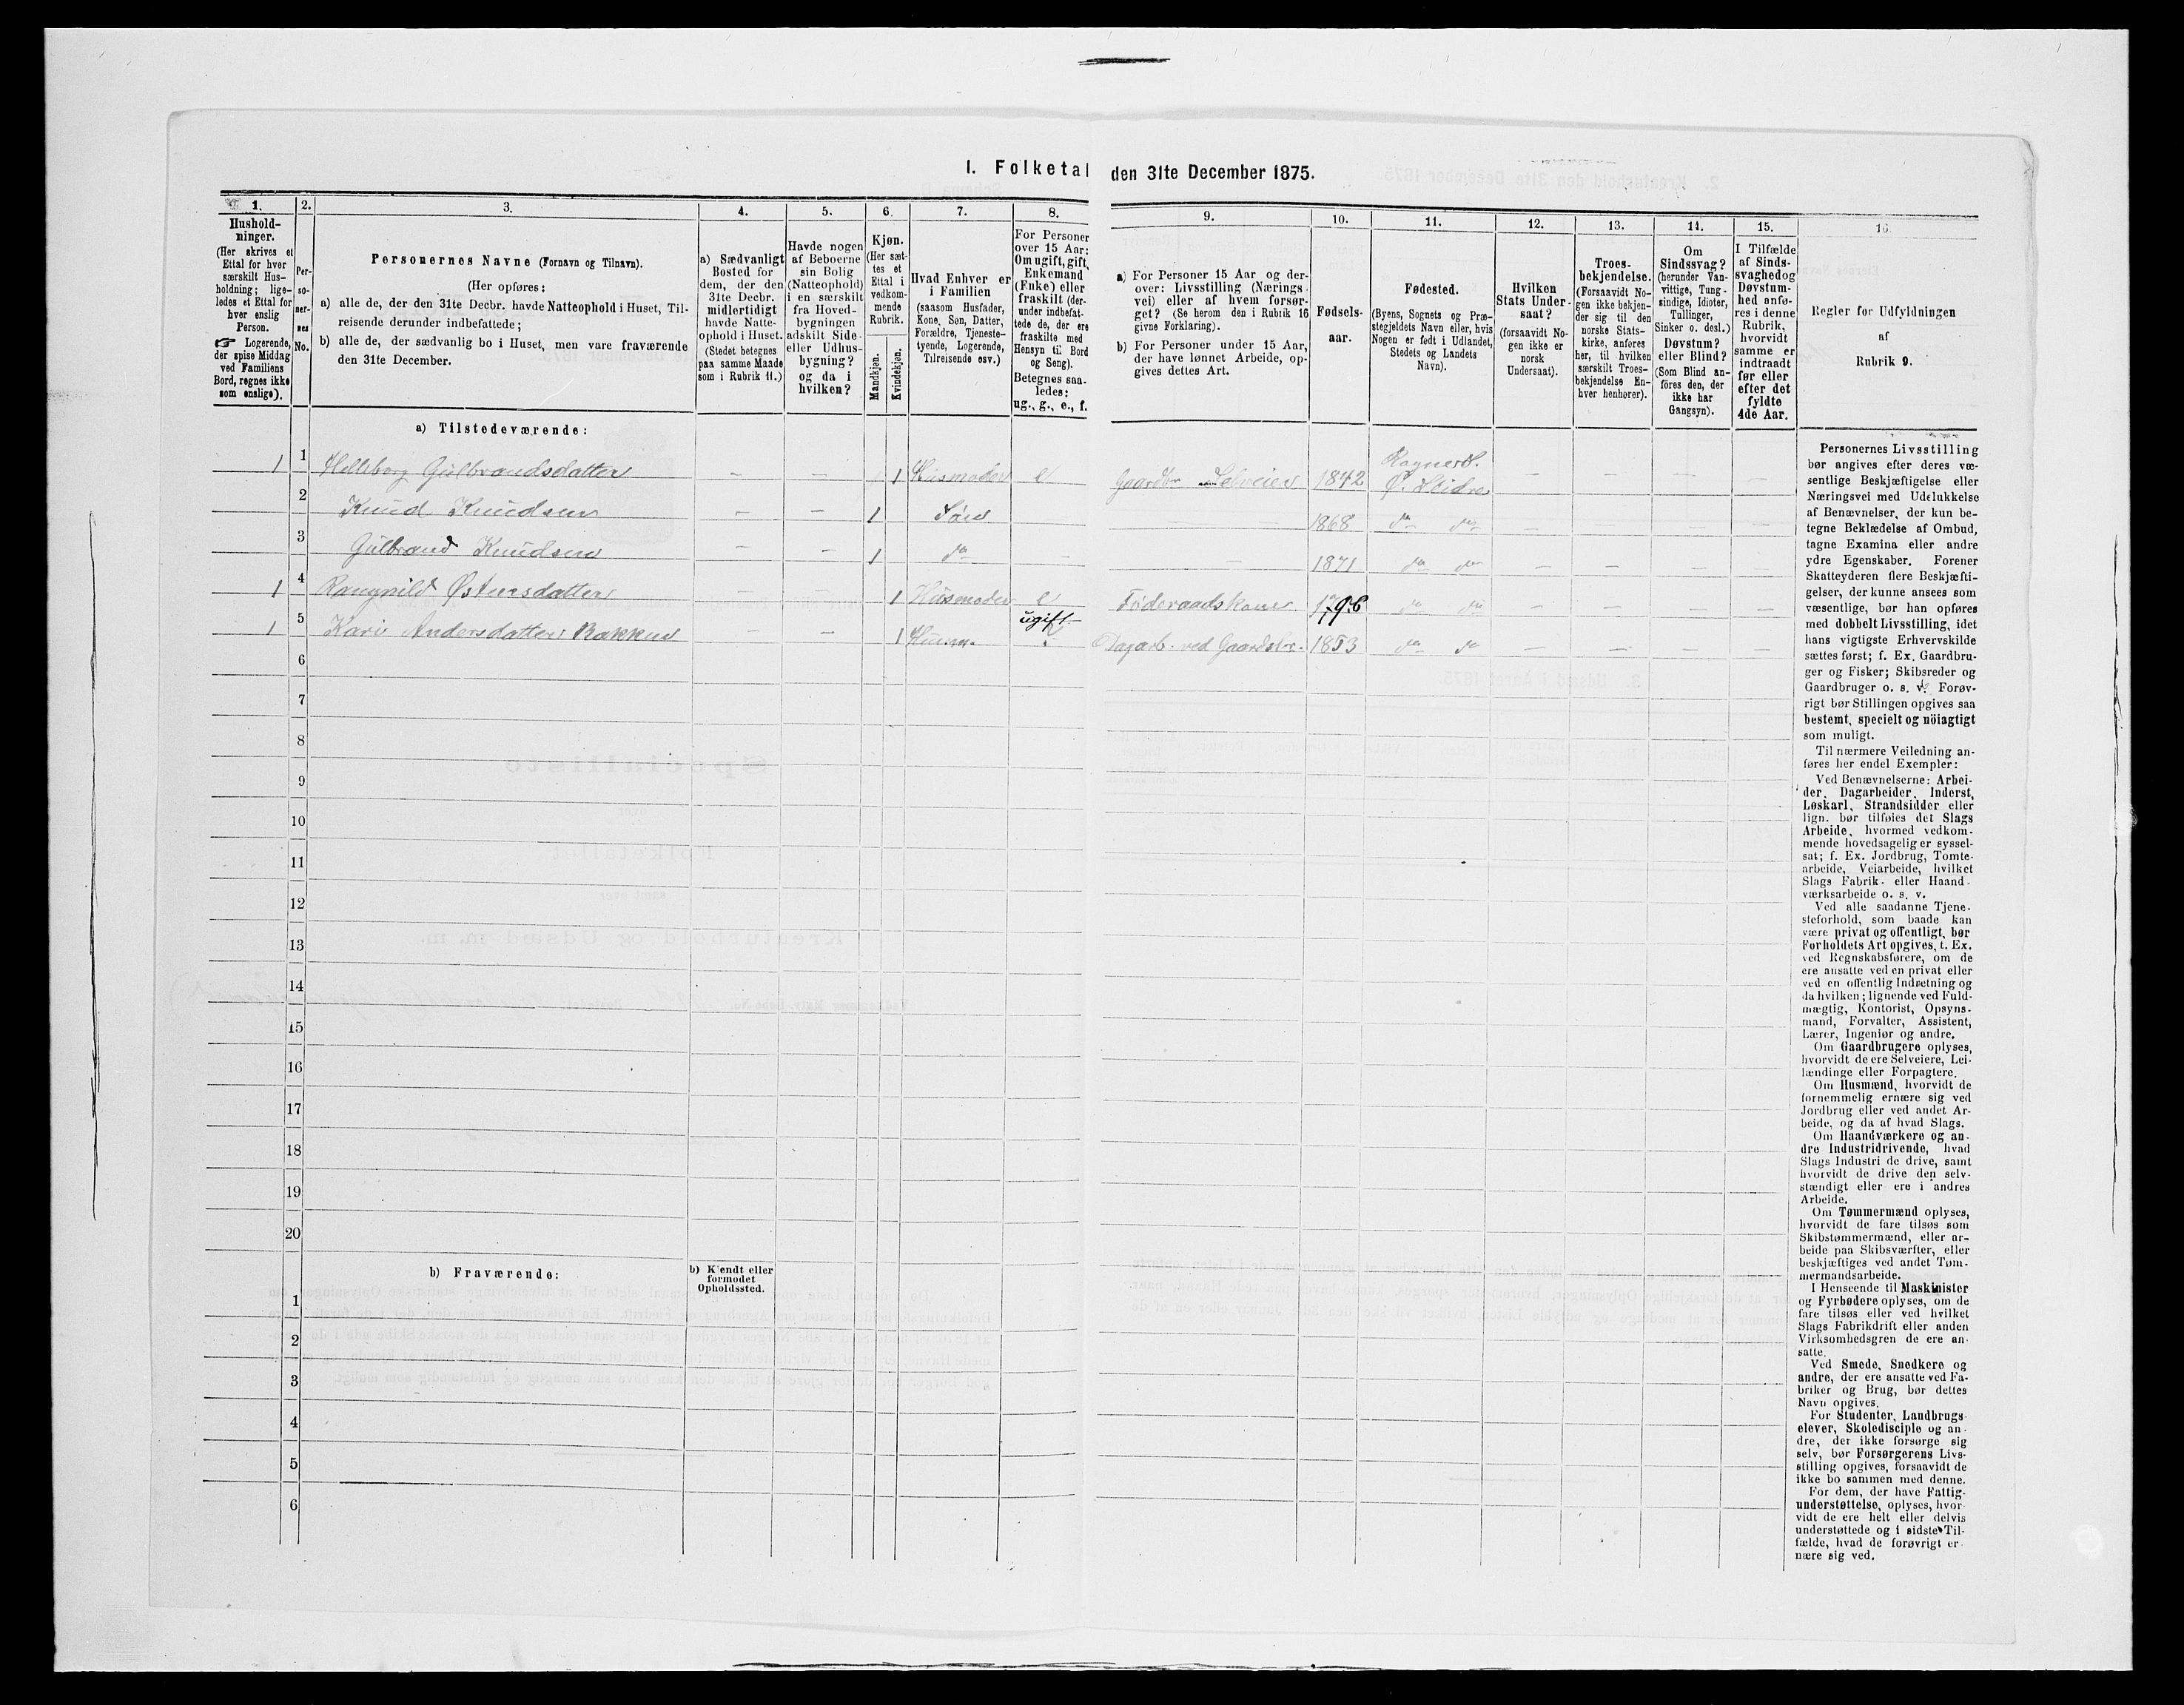 I. Folketal den 31te December 1875.
1.
Hushold-
ninger.
(Her skrives et
Ettal for hver
særskilt Hus-
holdning; lige-
ledes et Ettal for
hver enslig
Person.
☞ Logerende,
der spise Middag
ved Familiens
Bord, regnes ikke
som enslige).
2.
Per-
so-
ner-
nes
No.
3.
Personernes Navne (Fornavn og Tilnavn).
(Her opføres:
a) alle de, der den 31te Decbr. havde Natteophold i Huset, Til-
reisende derunder indbefattede;
b) alle de, der sædvanlig bo i Huset, men vare fraværende
den 31te December.
4.
a) Sædvanligt
Bosted for
dem, der den
31te Decbr.
midlertidigt
havde Natte-
ophold i Huset.
(Stedet betegnes
paa samme Maade
som i Rubrik 11.)
5.
Havde nogen
af Beboerne
sin Bolig
(Natteophold)
i en særskilt
fra Hoved-
bygningen
adskilt Side-
eller Udhus-
bygning?
og da i
hvilken?
6.
Kjøn.
(Her sæt-
tes et
Ettal i
vedkom-
mende
Rubrik.
Mandkjøn.
Kvindekjøn.
7.
Hvad Enhver er
i Familien
(saasom Husfader,
Kone, Søn, Datter,
Forældre, Tjeneste-
tyende, Logerende,
Tilreisende osv.)
8.
For Personer
over 15 Aar:
Om ugift, gift,
Enkemand
(Enke) eller
fraskilt (der-
under indbefat-
tede de, der ere
fraskilte med
Hensyn til Bord
og Seng).
Betegnes saa-
ledes:
ug., g., e., f.
9.
a) For Personer 15 Aar og der-
over: Livsstilling (Nærings-
vei) eller af hvem forsør-
get? (Se herom den i Rubrik 16
givne Forklaring).
b) For Personer under 15 Aar,
der have lønnet Arbeide, op-
gives dettes Art.
10.
Fødsels-
aar.
11.
Fødested.
(Byens, Sognets og Præ-
stegjeldets Navn eller, hvis
Nogen er født i Udlandet,
Stedets og Landets
Navn).
12.
Hvilken
Stats Under-
saat?
(forsaavidt No-
gen ikke er
norsk
Undersaat).
13.
Troes-
bekjendelse.
(Forsaavidt No-
gen ikke bekjen-
der sig til den
norske Stats-
kirke, anføres
her, til hvilken
særskilt Troes-
bekjendelse En-
hver henhører).
14.
Om
Sindssvag?
(herunder Van-
vittige, Tung-
sindige, Idioter,
Tullinger,
Sinker o. desl.)
Døvstum?
eller Blind?
(Som Blind an-
föres den, der
ikke har
Gangsyn).
15.
I Tilfælde
af Sinds-
svaghedog
Døvstum-
hed anfø-
res i denne
Rubrik,
hvorvidt
samme er
indtraadt
før eller
efter det
fyldte
4de Aar.
16.
Regler for Udfyldningen
af
Rubrik 9.
a) Tilstedeværende:
1 1 Helleborg Gulbrandsdatter – – 1 Husmoder e Gaardbr Selveier 1842 Ø. Slidre – – – –
2 Knud Knudsen – – 1 Søn 1868 do do – – – –
3 Gulbrand Knudsen – – 1 do – 1871 do do – – – –
1 4 Rangnild Østensdatter – – 1 Husmoder e Føderaadskone 1796 do do – – – –
1 5 Kari Andersdatter Bakken – – 1 Husm. ugift Dagarb. ved Gaardsbr. 1853 do do – – – –
6
7
8
9
10
11
12
13
14
15
16
17
18
19
20
b) Fraværende:
b) Kjendt eller
formodet
Opholdssted.
1
2
3
4
5
6
Personernes Livsstilling
bør angives efter deres væ-
sentlige Beskjæftigelse eller
Næringsvei med Udelukkelse
af Benævnelser, der kun be-
tegne Beklædelse af Ombud,
tagne Examina eller andre
ydre Egenskaber. Forener
Skatteyderen flere Beskjæfti-
gelser, der kunne ansees som
væsentlige, bør han opføres
med dobbelt Livsstilling, idet
hans vigtigste Erhvervskilde
sættes først; f. Ex. Gaardbru-
ger og Fisker; Skibsreder og
Gaardbruger o. s. v. Forøv-
rigt bør Stillingen opgives saa
bestemt, specielt og nöiagtigt
som muligt.
Til nærmere Veiledning an-
føres her endel Exempler:
Ved Benævnelserne: Arbei-
der, Dagarbeider, Inderst,
Løskarl, Strandsidder eller
lign. bør tilføies det Slags
Arbeide, hvormed vedkom-
mende hovedsagelig er syssel-
sat; f. Ex. Jordbrug, Tomte-
arbeide, Veiarbeide, hvilket
Slags Fabrik- eller Haand-
værksarbeide o. s. v.
Ved alle saadanne Tjene-
steforhold, som baade kan
være privat og offentligt, bør
Forholdets Art opgives, t. Ex.
ved Regnskabsførere, om de
ere ansatte ved en privat eller
ved en offentlig Indretning og
da hvilken; lignende ved Fuld-
mægtig, Kontorist, Opsyns-
mand, Forvalter, Assistent,
Lærer, Ingeniør og andre.
Om Gaardbrugere oplyses,
hvorvidt de ere Selveiere, Lei-
lændinge eller Forpagtere.
Om Husmænd, hvorvidt de
fornemmelig ernære sig ved
Jordbrug eller ved andet Ar-
beide, og da af hvad Slags.
Om Haandværkere og an-
dre Industridrivende, hvad
Slags Industri de drive, samt
hvorvidt de drive den selv-
stændigt eller ere i andres
Arbeide.
Om Tømmermænd oplyses,
hvorvidt de fare tilsøs som
Skibstømmermænd, eller ar-
beide paa Skibsværfter, eller
beskjæftiges ved andet Tøm-
mermandsarbeide.
I Henseende til Maskinister
og Fyrbødere oplyses, om de
fare tilsøs eller ved hvilket
Slags Fabrikdrift eller anden
Virksomhedsgren de ere an-
satte.
Ved Smede, Snedkere og
andre, der ere ansatte ved Fa-
briker og Brug, bør dettes
Navn opgives.
For Studenter, Landbrugs-
elever, Skoledisciple og an-
dre, der ikke forsørge sig
selv, bør Forsørgerens Livs-
stilling opgives, forsaavidt de
ikke bo sammen med denne.
For dem, der have Fattig-
understøttelse, oplyses, hvor-
vidt de ere helt eller delvis
understøttede og i sidste Til-
fælde, hvad de forøvrigt er-
nære sig ved.